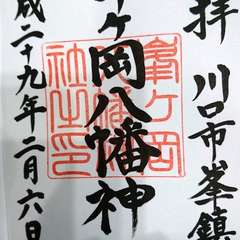 拝 川口市峯鎮
ヶ岡八幡神
成二十九年二月六日
峯ヶ岡
八幡神
社之印